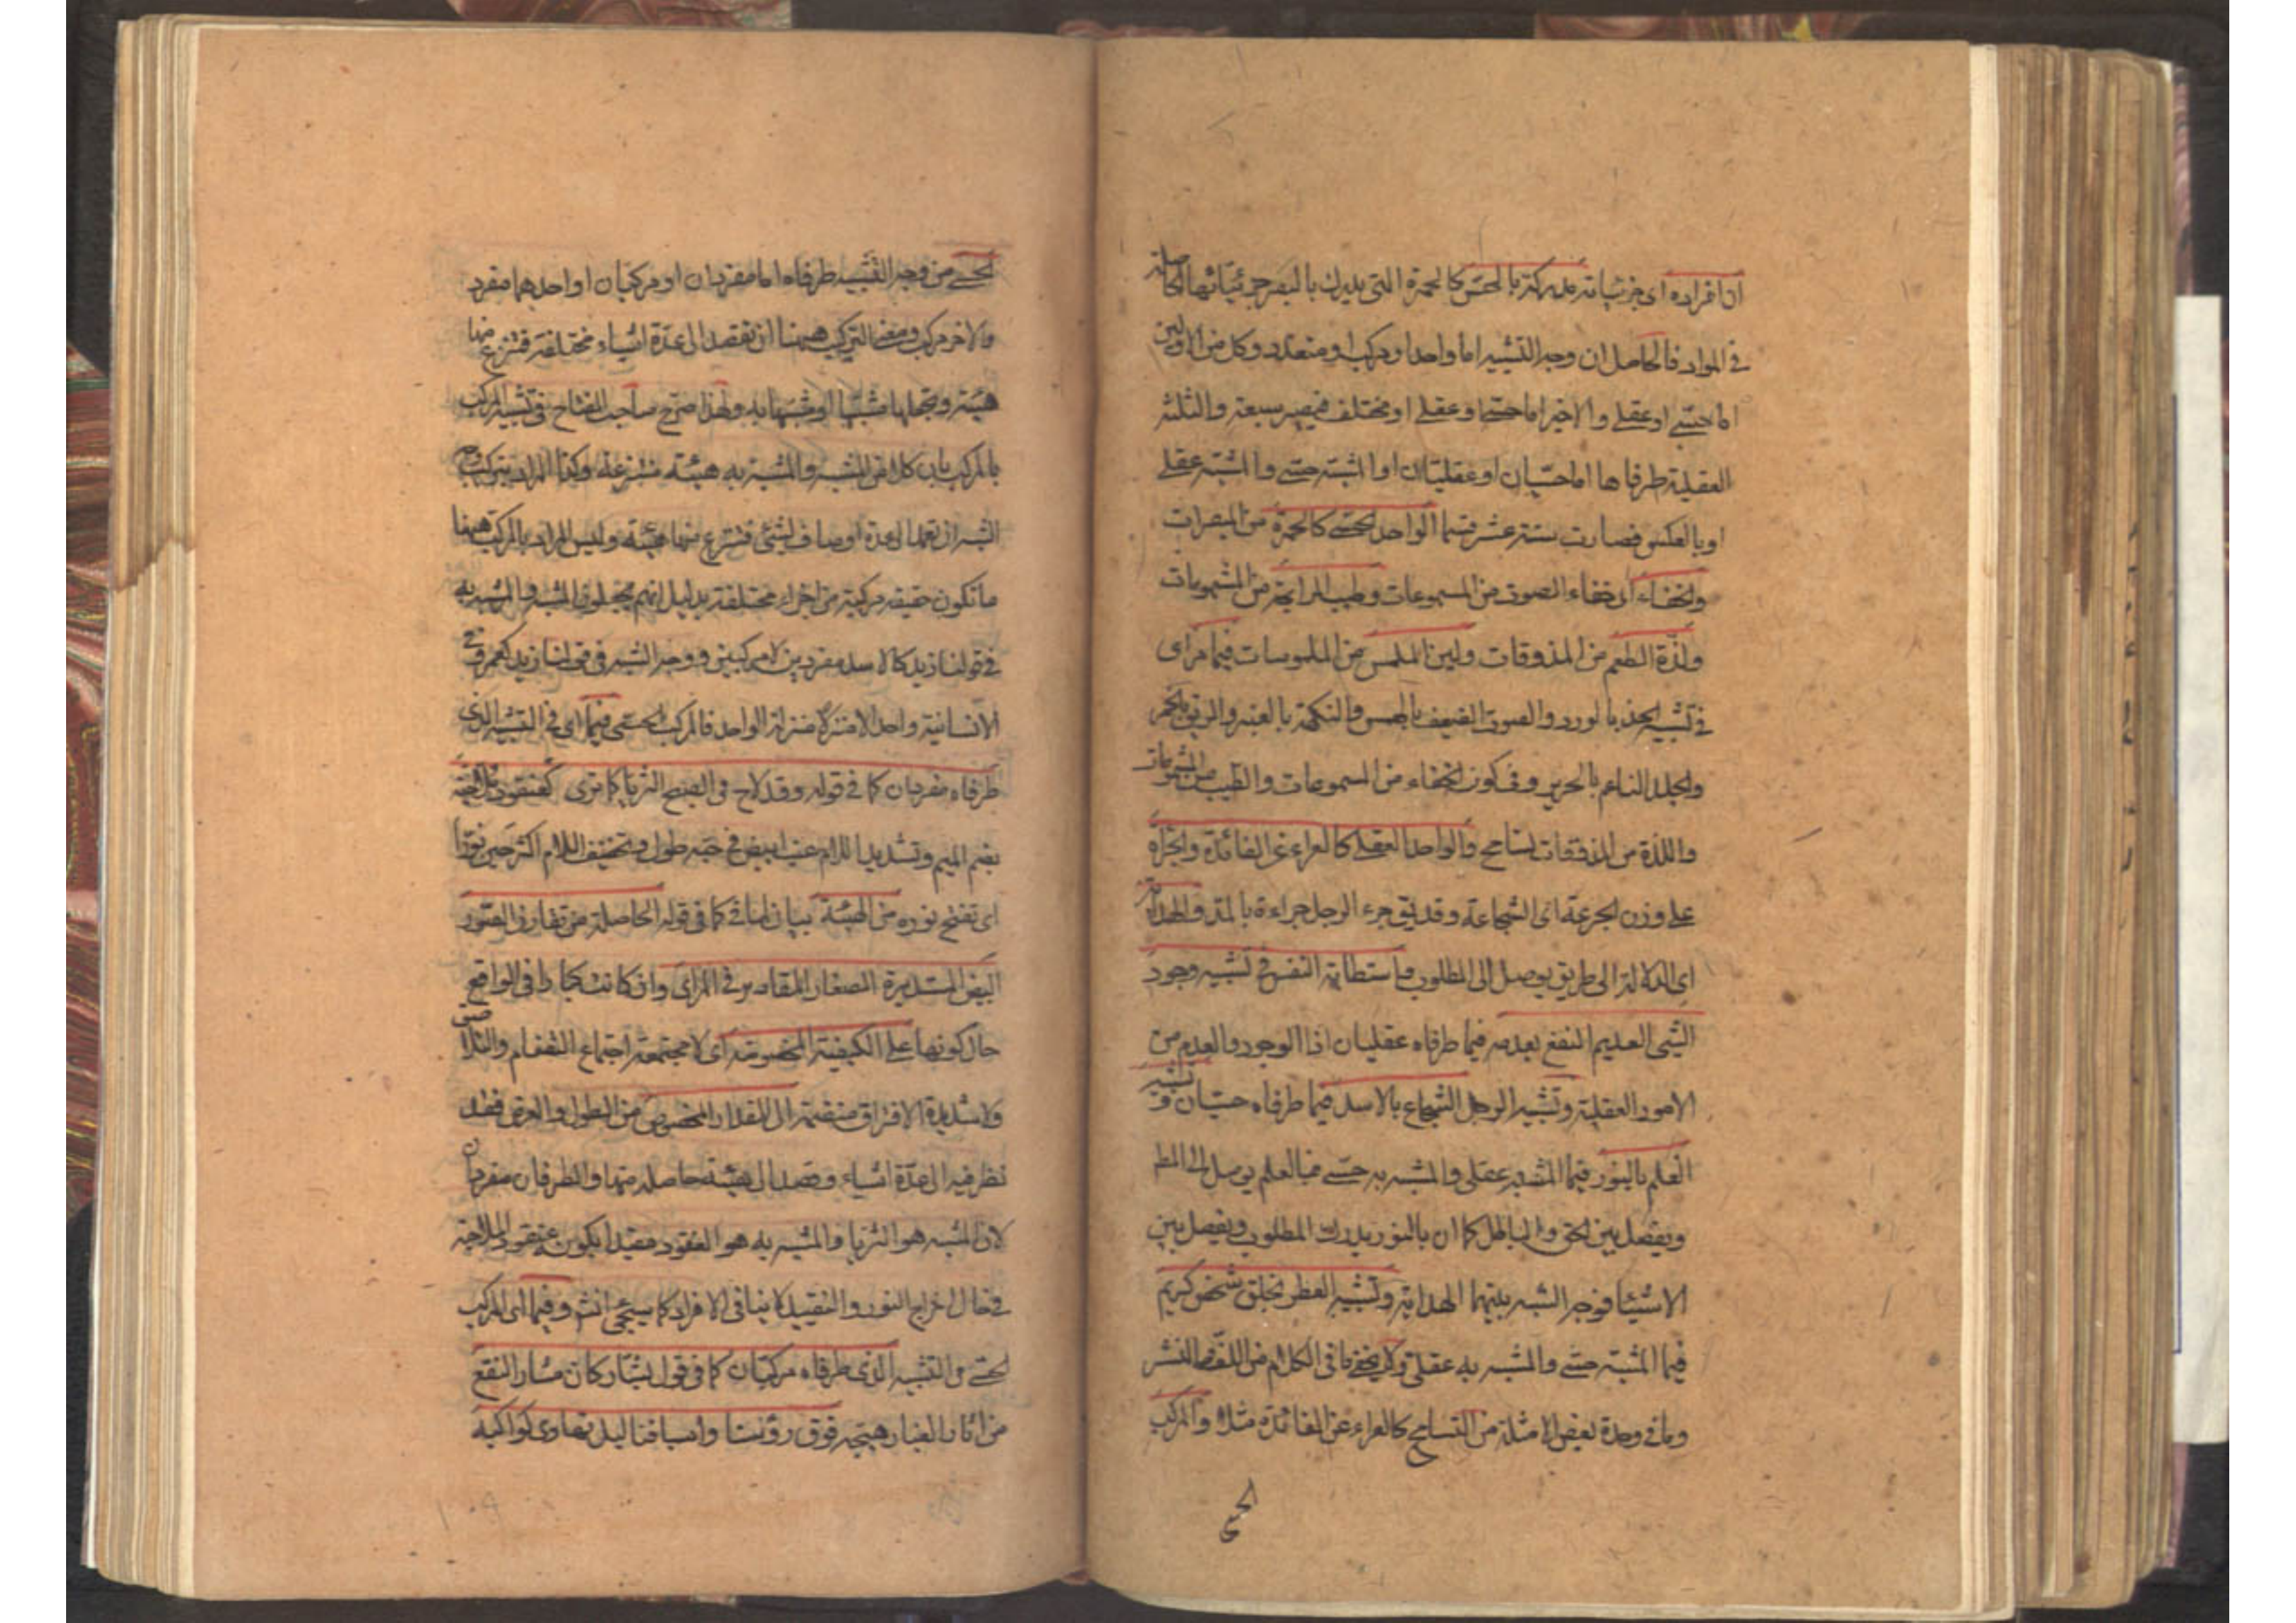 ان افراده اى جزئياته مدركة بالحس كالحمرة التى يدرك بالبصر جزئياتها الحاصلة
فى المواد فالحاصل ان وجه التشبيه اما واحد او مركب او متعدد وكل من الاولين
اما حسى او عقلى والاخير اما حسى او عقلى او مختلف فيصير سبعة والثلثة
العقلية طرفاها اما حسيان او عقليان او المشبه حسى والمشبه عقلى
او بالعكس فصارت ستة عشر قسما الواحد الحسى كالحمرة من المبصرات
والخفاء اى خفاء الصوت من المسموعات وطيب الرايحة من المشمومات
ولذة الطعم من المذوقات ولين الملمس من الملموسات فيما مر اى
فى تشبيه الخد بالورد والصوت الضعيف بالهمس والنكهة بالعنبر والريق بالخمر
والجلد الناعم بالحرير وفى كون الخفاء من المسموعات والطيب من المشمومات
واللذة من المذوقات تسامح والواحد العقلى كالعراء عن الفائدة والجراة
على وزن الجرعة اى الشجاعة وقد يق جرء الرجل جراءة بالمد والهداية
اى الدلالة الى طريق يوصل الى المطلوب واستطابة النفس فى تشبيه وجود
الشىء العديم النفع بعدمه فيما طرفاه عقليان اذ الوجود والعدم من
الامور العقلية وتشبيه الرجل الشجاع بالاسد فيما طرفاه حسيان وتشبيه
العلم بالنور فيما المشبه عقلى والمشبه به حسى فبالعلم يوصل الى المط
ويفصل بين الحق والباطل كما ان بالنور يدرك المطلوب ويفصل بين
الاشيا فوجه الشبه بينهما الهداية وتشبيه العطر بخلق شخص كريم
فيما المشبه حسى والمشبه به عقلى ولا يخفى ما فى الكلام من اللف والنشر
وما فى وحدة بعض الامثلة من التسامح كالعراء عن الفائدة مثلا والمركب
الحسى
الحسى من وجه التشبيه طرفاه اما مفردان او مركبان او احدهما مفرد
والاخر مركب ومعنى التركيب ههنا ان تقصد الى عدة اشياء مختلفة فتنزع منها
هيئة وتجعلها مشبها او مشبها به ولهذا صرح صاحب المفتاح فى تشبيه المركب
بالمركب بان كلا من المشبه والمشبه به هيئة منتزعة وكذا المراد بتركيب وجه
الشبه ان تعمد الى عدة اوصاف لشئ فتنزع منها هيئة وليس المراد بالمركب ههنا
ما تكون حقيقة مركبة من اجزاء مختلفة بدليل انهم يجعلون المشبه والمشبه به
فى قولنا زيد كالاسد مفردين لا مركبين ووجه الشبه فى قولنا زيد كعمرو فى
الانسانية واحدا لا منزلا منزلة الواحد فالمركب الحسى فيما اى فى التشبيه الذى
طرفاه مفردان كما فى قوله وقد لاح فى الصبح الثريا كما ترى كعنقود ملاحية
بضم الميم وتشديد اللام عنب ابيض فى حبه طول وتخفيف اللام اكثر حين نورا
اى تفتح نوره من الهيئة بيان لما فى كما فى قوله الحاصلة من تقارن الصور
البيض المستديرة الصغار المقادير فى المراى وان كانت كبارا فى الواقع
حال كونها على الكيفية المخصوصة اى لا مجتمعة اجتماع التضام والتلاصق
ولا شديدة الافتراق منضمة الى المقدار المخصوص من الطول والعرض فقد
نظر فيه الى عدة اشياء وقصد الى هيئة حاصلة منها والطرفان مفردان
لان المشبه هو الثريا والمشبه به هو العنقود مقيدا بكونه عنقود الملاحية
فى حال اخراج النور والتقييد لا ينافى الافراد كما سيجئ انش وفيما اى المركب
الحسى من التشبيه الذى طرفاه مركبان كما فى قول بشار كان مثار النقع
من اثار الغبار هيجه فوق رؤسنا واسيافنا ليل تهاوى كواكبه